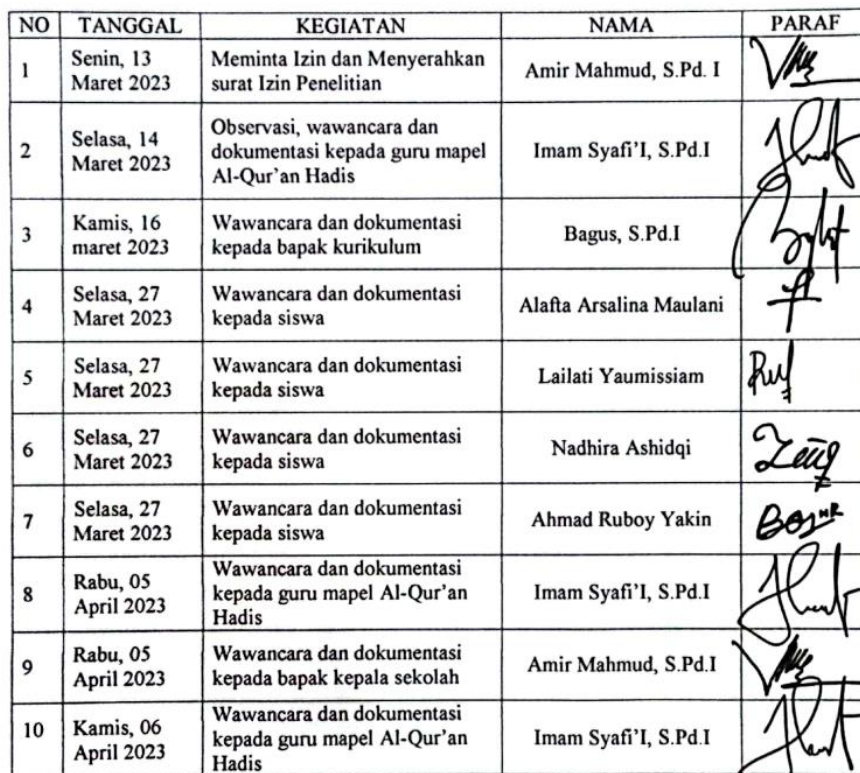 NO TANGGAL KEGIATAN NAMA PARAF
1 Senin, 13 Maret 2023 Meminta Izin dan Menyerahkan surat Izin Penelitian Amir Mahmud, S.Pd. I
2 Selasa, 14 Maret 2023 Observasi, wawancara dan dokumentasi kepada guru mapel Al-Qur'an Hadis Imam Syafi'I, S.Pd.I
3 Kamis, 16 maret 2023 Wawancara dan dokumentasi kepada bapak kurikulum Bagus, S.Pd.I
4 Selasa, 27 Maret 2023 Wawancara dan dokumentasi kepada siswa Alafta Arsalina Maulani
5 Selasa, 27 Maret 2023 Wawancara dan dokumentasi kepada siswa Lailati Yaumissiam
6 Selasa, 27 Maret 2023 Wawancara dan dokumentasi kepada siswa Nadhira Ashidqi
7 Selasa, 27 Maret 2023 Wawancara dan dokumentasi kepada siswa Ahmad Ruboy Yakin
8 Rabu, 05 April 2023 Wawancara dan dokumentasi kepada guru mapel Al-Qur'an Hadis Imam Syafi'I, S.Pd.I
9 Rabu, 05 April 2023 Wawancara dan dokumentasi kepada bapak kepala sekolah Amir Mahmud, S.Pd.I
10 Kamis, 06 April 2023 Wawancara dan dokumentasi kepada guru mapel Al-Qur'an Hadis Imam Syafi'I, S.Pd.I